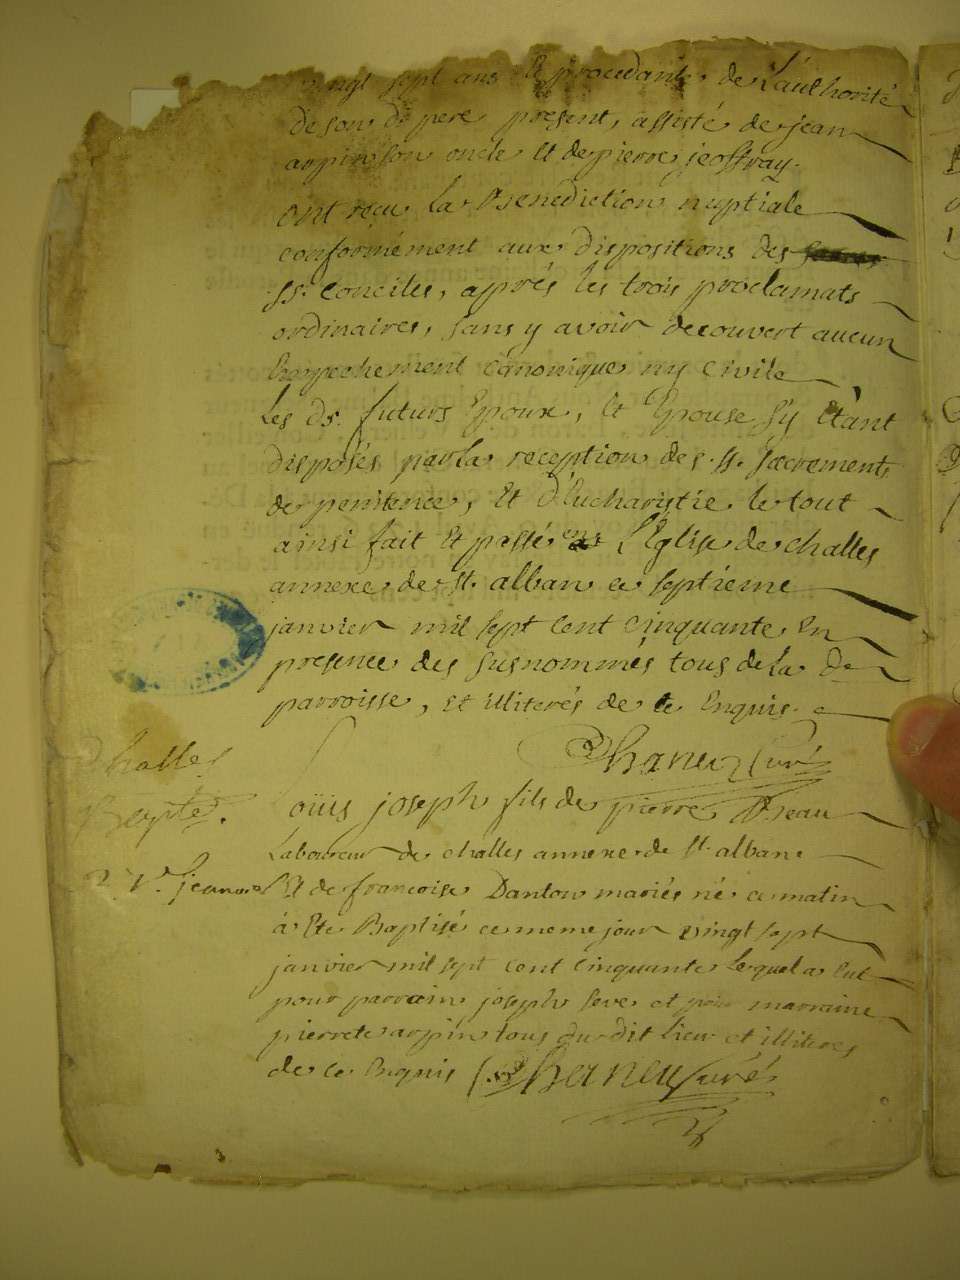 vingt sept ans et procedante de L'authorité
de son dt pere present, assisté de jean
arpin son oncle et de pierre jeoffray.
ont reçu la Benediction nuptiale
conformément aux dispositions des
SS. Conciles, aprés les trois proclamats
ordinaires, sans y avoir decouvert aucun
Empechement canonique ny civile
Les ds. futurs Epoux, et Epouse s'y Etant
disposés par la reception des SS. sacrements
de penitence, et d'Eucharistie le tout
ainsi fait et passé en L'Eglise de challes
annexe de St. alban ce septieme
janvier mil sept cent cinquante En
presence des susnommés tous de La de
parroisse, et illiterés de ce Enquis
Curé
Challes
Louis joseph fils de pierre Beau
Bapte.
Laboureur de challes annexe de St. alban
Et de francoise Danton mariés né ce matin
à Ete Baptisé ce meme jour vingt sept
janvier mil sept cent cinquante lequel a Eut
pour parrain joseph seve et pour marraine
pierrete arpin tous du dit lieu et illiteres
de ce Enquis Curé